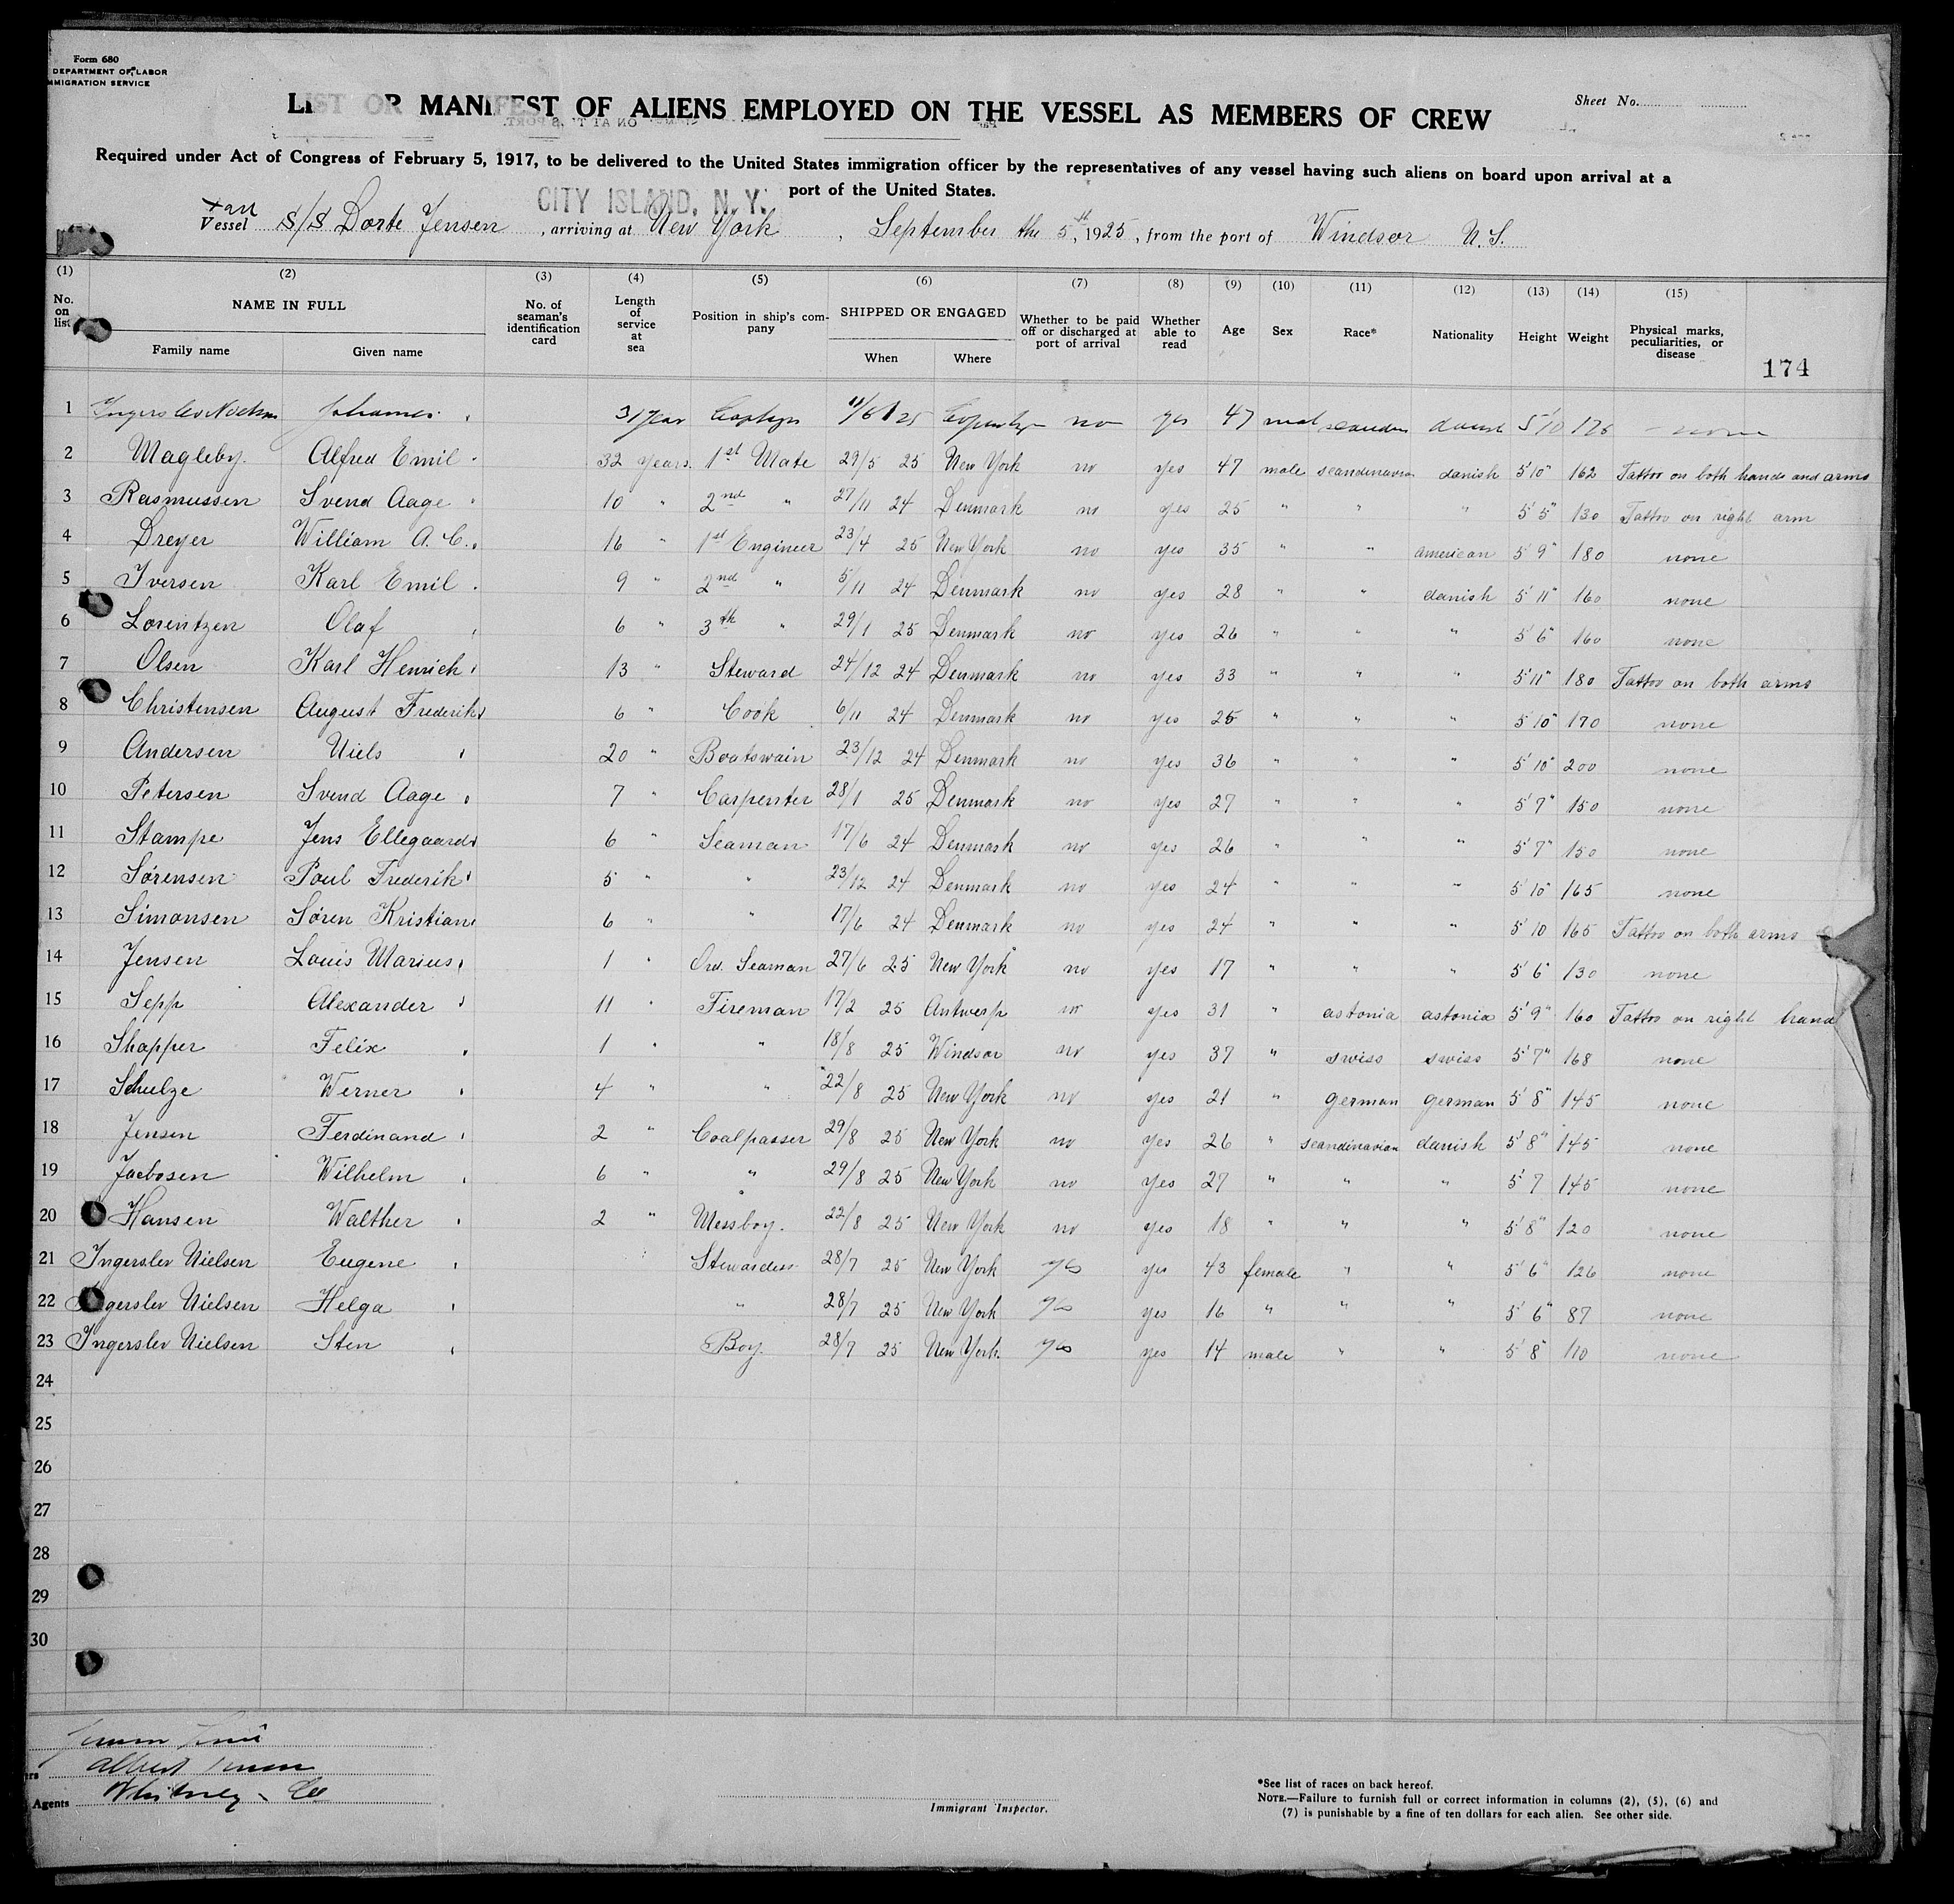 Form 680
DEPARTMENT OF LABOR
IMMIGRATION SERVICE
LIST OR MANIFEST OF ALIENS EMPLOYED ON THE VESSEL AS MEMBERS OF CREW
Sheet No.
Required under Act of Congress of February 5, 1917, to be delivered to the United States immigration officer by the representatives of any vessel having such aliens on board upon arrival at a
port of the United States.
CITY ISLAND, N. Y.
Vessel S/S Dorte Jensen, arriving at New York, September the 5th, 1925, from the port of Windsor N.S.
(1) (2) (3) (4) (5) (6) (7) (8) (9) (10) (11) (12) (13) (14) (15)
No. on list NAME IN FULL Family name Given name No. of seaman's identification card Length of service at sea Position in ship's company SHIPPED OR ENGAGED When Where Whether to be paid off or discharged at port of arrival Whether able to read Age Sex Race* Nationality Height Weight Physical marks, peculiarities, or disease
174
1 31 year 11/6 25 no yes 47 5'10 176 none
2 Magleby Alfred Emil 32 years 1st Mate 29/5 25 New York no yes 47 male scandinavian danish 5'10" 162 Tattoo on both hands and arms
3 Rasmussen Svend Aage 10 " 2nd " 27/11 24 Denmark no yes 25 " " " 5'5" 130 Tattoo on right arm
4 Dreyer William A. C. 16 " 1st Engineer 23/4 25 New York no yes 35 " " american 5'9" 180 none
5 Iversen Karl Emil 9 " 2nd " 5/11 24 Denmark no yes 28 " " danish 5'11" 160 none
6 Lorentzen Olaf 6 " 3th " 29/1 25 Denmark no yes 26 " " " 5'6" 160 none
7 Olsen Karl Henrich 13 " Steward 24/12 24 Denmark no yes 33 " " " 5'11" 180 Tattoo on both arms
8 Christensen August Frederik 6 " Cook 6/11 24 Denmark no yes 25 " " " 5'10" 170 none
9 Andersen Niels 20 " Boatswain 23/12 24 Denmark no yes 36 " " " 5'10" 200 none
10 Petersen Svend Aage 7 " Carpenter 28/1 25 Denmark no yes 27 " " " 5'7" 150 none
11 Stampe Jens Ellegaard 6 " Seaman 17/6 24 Denmark no yes 26 " " " 5'7" 150 none
12 Sørensen Poul Frederik 5 " " 23/12 24 Denmark no yes 24 " " " 5'10" 165 none
13 Simonsen Søren Kristian 6 " " 17/6 24 Denmark no yes 24 " " " 5'10 165 Tattoo on both arms
14 Jensen Louis Marius 1 " Ord. Seaman 27/6 25 New York no yes 17 " " " 5'6" 130 none
15 Sepp Alexander 11 " Fireman 17/2 25 Antwerp no yes 31 " astonia astonia 5'9" 160 Tattoo on right hand
16 Shapper Felix 1 " " 18/8 25 Windsor no yes 37 " swiss swiss 5'7" 168 none
17 Schulze Werner 4 " " 22/8 25 New York no yes 21 " german german 5'8" 145 none
18 Jensen Ferdinand 2 " Coalpasser 29/8 25 New York no yes 26 " scandinavian danish 5'8" 145 none
19 Jacbosen Wilhelm 6 " " 29/8 25 New York no yes 27 " " " 5'7 145 none
20 Hansen Walther 2 " Messboy. 22/8 25 New York no yes 18 " " " 5'8" 120 none
21 Ingerslev Nielsen Eugene Stewardess 28/7 25 New York yes yes 43 female " " 5'6" 126 none
22 Ingerslev Nielsen Helga " 28/7 25 New York yes yes 16 " " " 5'6" 87 none
23 Ingerslev Nielsen Sten Boy. 28/7 25 New York. yes yes 14 male " " 5'8" 110 none
24
25
26
27
28
29
30
Agents Whitney Co
Immigrant Inspector.
*See list of races on back hereof.
NOTE.—Failure to furnish full or correct information in columns (2), (5), (6) and
(7) is punishable by a fine of ten dollars for each alien. See other side.